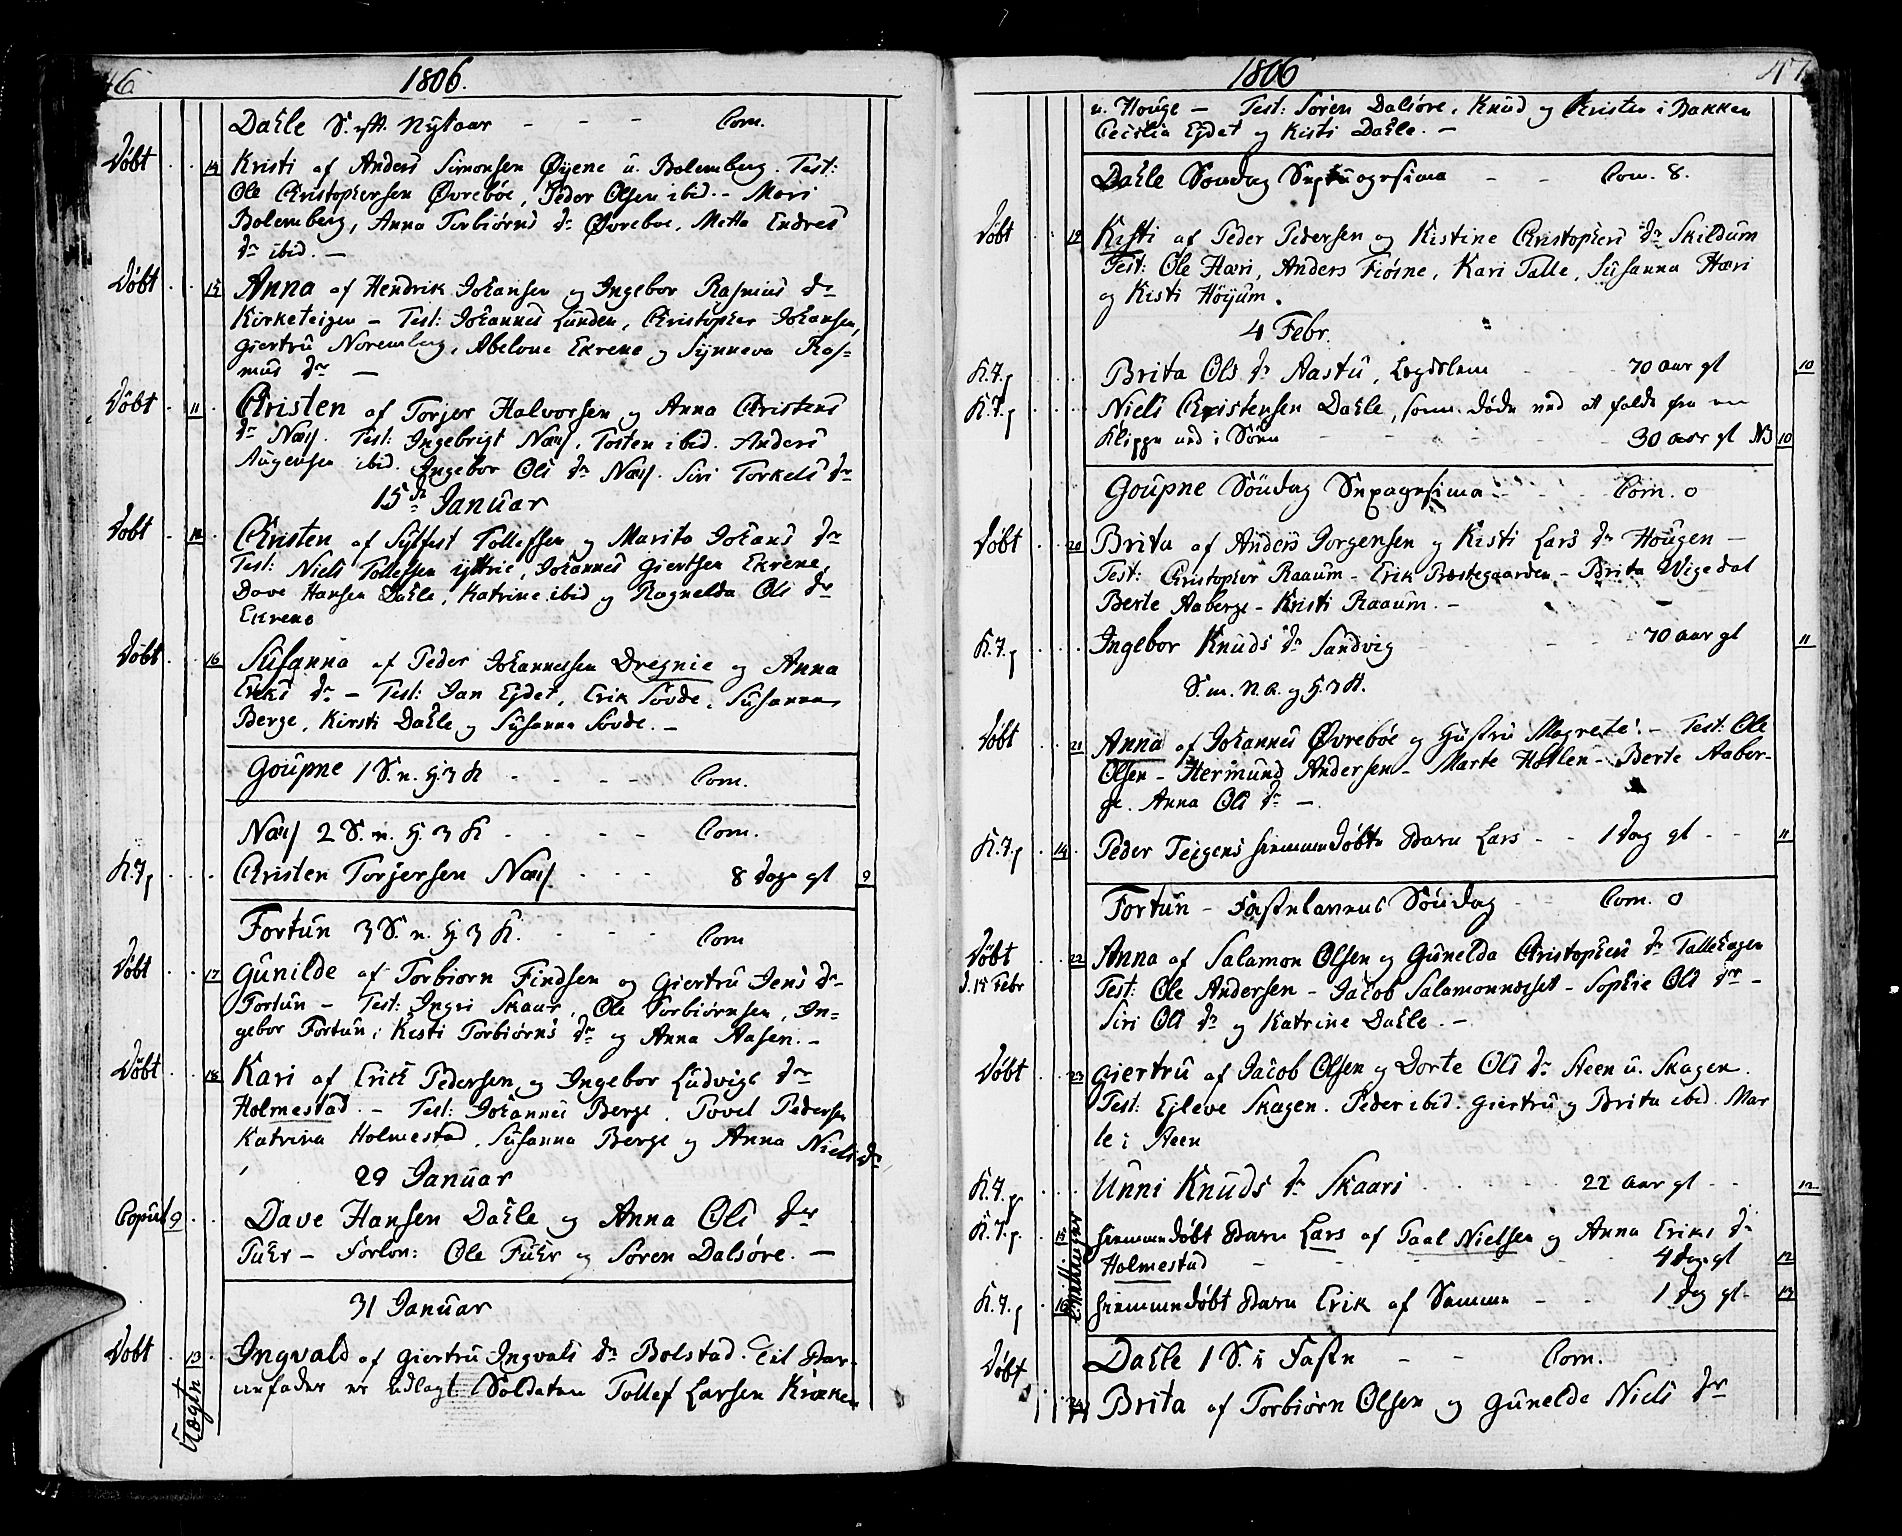 46 1806.
Dahle S. eft. Nytaar - - - Com.
Døbt 14 Kristi af Anders Simonsen Øyene u. Bolemberg. Test:
Ole Christophersen Øvrebøe, Peder Olsen ibid. - Mari
Bolemberg, Anna Torbiørns dr. Øvreboe, Metta Endres
dr ibid. -
Døbt 15 Anna af Hendrik Johansen og Ingebor Rasmus dr
Kirketeigen - Test: Johannes Lunden, Christopher Johansen,
Giertru Noremberg, Abelone Ekrene og Synneva Ras=
mus dr -
Døbt 11 Christen af Torjer Halvorsen og Anna Christens
dr Næss. Test: Ingebrigt Næss, Tosten ibid. Anders
Augensen ibid. Ingebor Ols dr Næss. Siri Torkels dr
15d Januar
Døbt 12 Christen af Sylfest Tollefsen og Marita Johans dr
Test: Niels Tollefsen yttrie, Johannes Giertsen Ekrene,
Dave Hansen Dahle, Katrine ibid og Ragnelda Ols dr
Ekrene
Døbt 16 Susanna af Peder Johannessen Dregnie og Anna
Eriks dr - Test: Jan Ejdet, Erik Sovde, Susanna
Berge, Kirsti Dahle og Susanna Sovde. -
Goupne 1 S. n. H. 3 K - - - - Com.
Næss 2 S. n. H. 3 K - - - - Com.
K. 7. p Christen Torjersen Næss - - - 8 dage gl 9
Fortun 3 S. n. H. 3 K. - - - Com
Døbt 17 Gunilde af Torbiorn Findsen og Giertru Jens dr
Fortun - Test: Ingri Skaar, Ole Torbiørnsen, In=
gebor Fortun, Kisti Torbiørns dr og Anna Aasen. -
Døbt 18 Kari af Erich Pedersen og Ingebor Ludvigs dr
Holmestad. - Test: Johannes Berge, Povel Pedersen
Katrina Holmestad, Susanna Berge og Anna Niels dr
29 Januar
Copul 9 Dave Hansen Dahle og Anna Ols dr
Fuhr - Forlon: Ole Fuhr og Søren Dalsøre. -
31 Januar
Døbt 13 Ingvald af Giertru Ingvals dr Bolstad. Til Bar-
nefader er udlagt Soldaten Tollef Larsen Kroken
Uægte
1806 47
u. Houge - Test: Søren Dalsøre, Knud og Christen i Bakken
Cecilia Ejdet og Kisti Dahle. -
Dahle Søndag Septuagesima - - Com. 8.
Døbt 19 Kisti af Peder Pedersen og Kistine Christophers dr Skildum
Test: Ole Hæri, Anders Fiøsne, Kari Talle, Susanna Hæri
og Kisti Høyum.
4 Febr.
K. 7. p Brita Ols dr Aastu, Legdslem - - 70 aar gl 10
K. 7. p Niels Christensen Dahle, som døde ved at falde fra en
Klippe ned i Søen - - - - 30 aar gl NB 10
Goupne Søndag Sexagesima - - Com. 0
Døbt 20 Brita af Anders Jorgensen og Kisti Lars dr Hougen -
Test: Christopher Raaum - Erik Præstegaarden - Brita Wigedal
Berte Aaberge - Kristi Raaum. -
K. 7. p Ingebor Knuds dr Sandvig - - 70 aar gl 11
S. m. N. A. og H. 3 K.
Døbt 21 Anna af Johannes Øvrebøe og Gustru Magrete. - Test: Ole
Olsen - Hermund Andersen - Marte Hollen - Berte Aaber-
ge. Anna Ols dr -.
K. 7. p 14 Peder Teigens hiemmedøbte Barn Lars - - 1 dag gl - - 11
Fortun - Fastelavens Søndag - Com. 0
Døbt 22 Anna af Salamon Olsen og Gunelda Christophers dr Tallehagen
d. 15 Febr Test: Ole Andersen - Jacob Salamonnæset - Sophie Ols dr -
Siri Ols dr og Katrine Dahle. -
Døbt 23 Giertru af Jacob Olsen og Dorte Ols dr Steen u. Skagen.
Test: Ejleve Skagen. Peder ibid. Giertru og Brita ibid. Mar
te i Steen
K. 7. p Unni Knuds dr Skaari - - - 22 aar gl - - 12
K. 7. p 15 hiemmedøbt Barn Lars af Paal Nielsen og Anna Eriks dr
Holmestad - - - - 4 dage gl 12
K. 7. p 16 hiemmedøbt Barn Erik af Samme - - 1 dag gl - 13
Dahle 1 S. i Faste - - Com.
Døbt 24 Brita af Torbiørn Olsen og Gunelde Niels dr